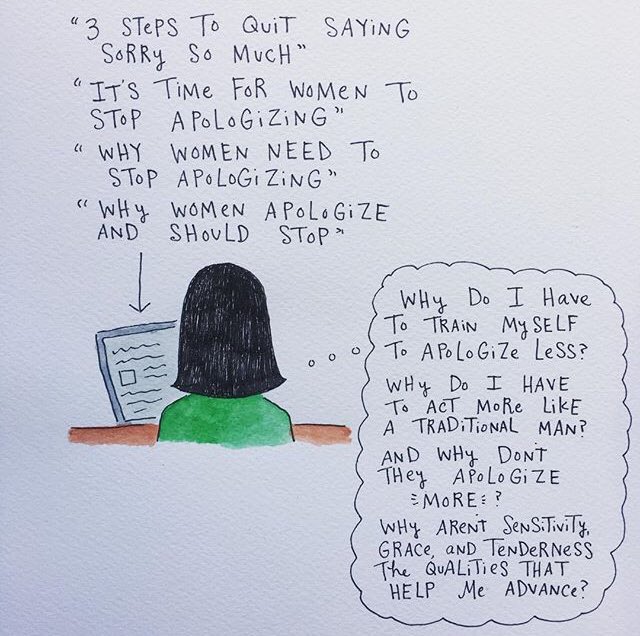 "3 STEPS TO QUIT SAYING
SORRY SO MUCH"
"IT'S TIME FOR WOMEN TO
STOP APOLOGIZING"
"WHY WOMEN NEED TO
STOP APOLOGIZING"
"WHY WOMEN APOLOGIZE
AND SHOULD STOP"
WHY DO I HAVE
TO TRAIN MYSELF
TO APOLOGIZE LESS?
WHY DO I HAVE
TO ACT MORE LIKE
A TRADITIONAL MAN?
AND WHY DON'T
THEY APOLOGIZE
MORE?
WHY AREN'T SENSITIVITY,
GRACE, AND TENDERNESS
THE QUALITIES THAT
HELP ME ADVANCE?